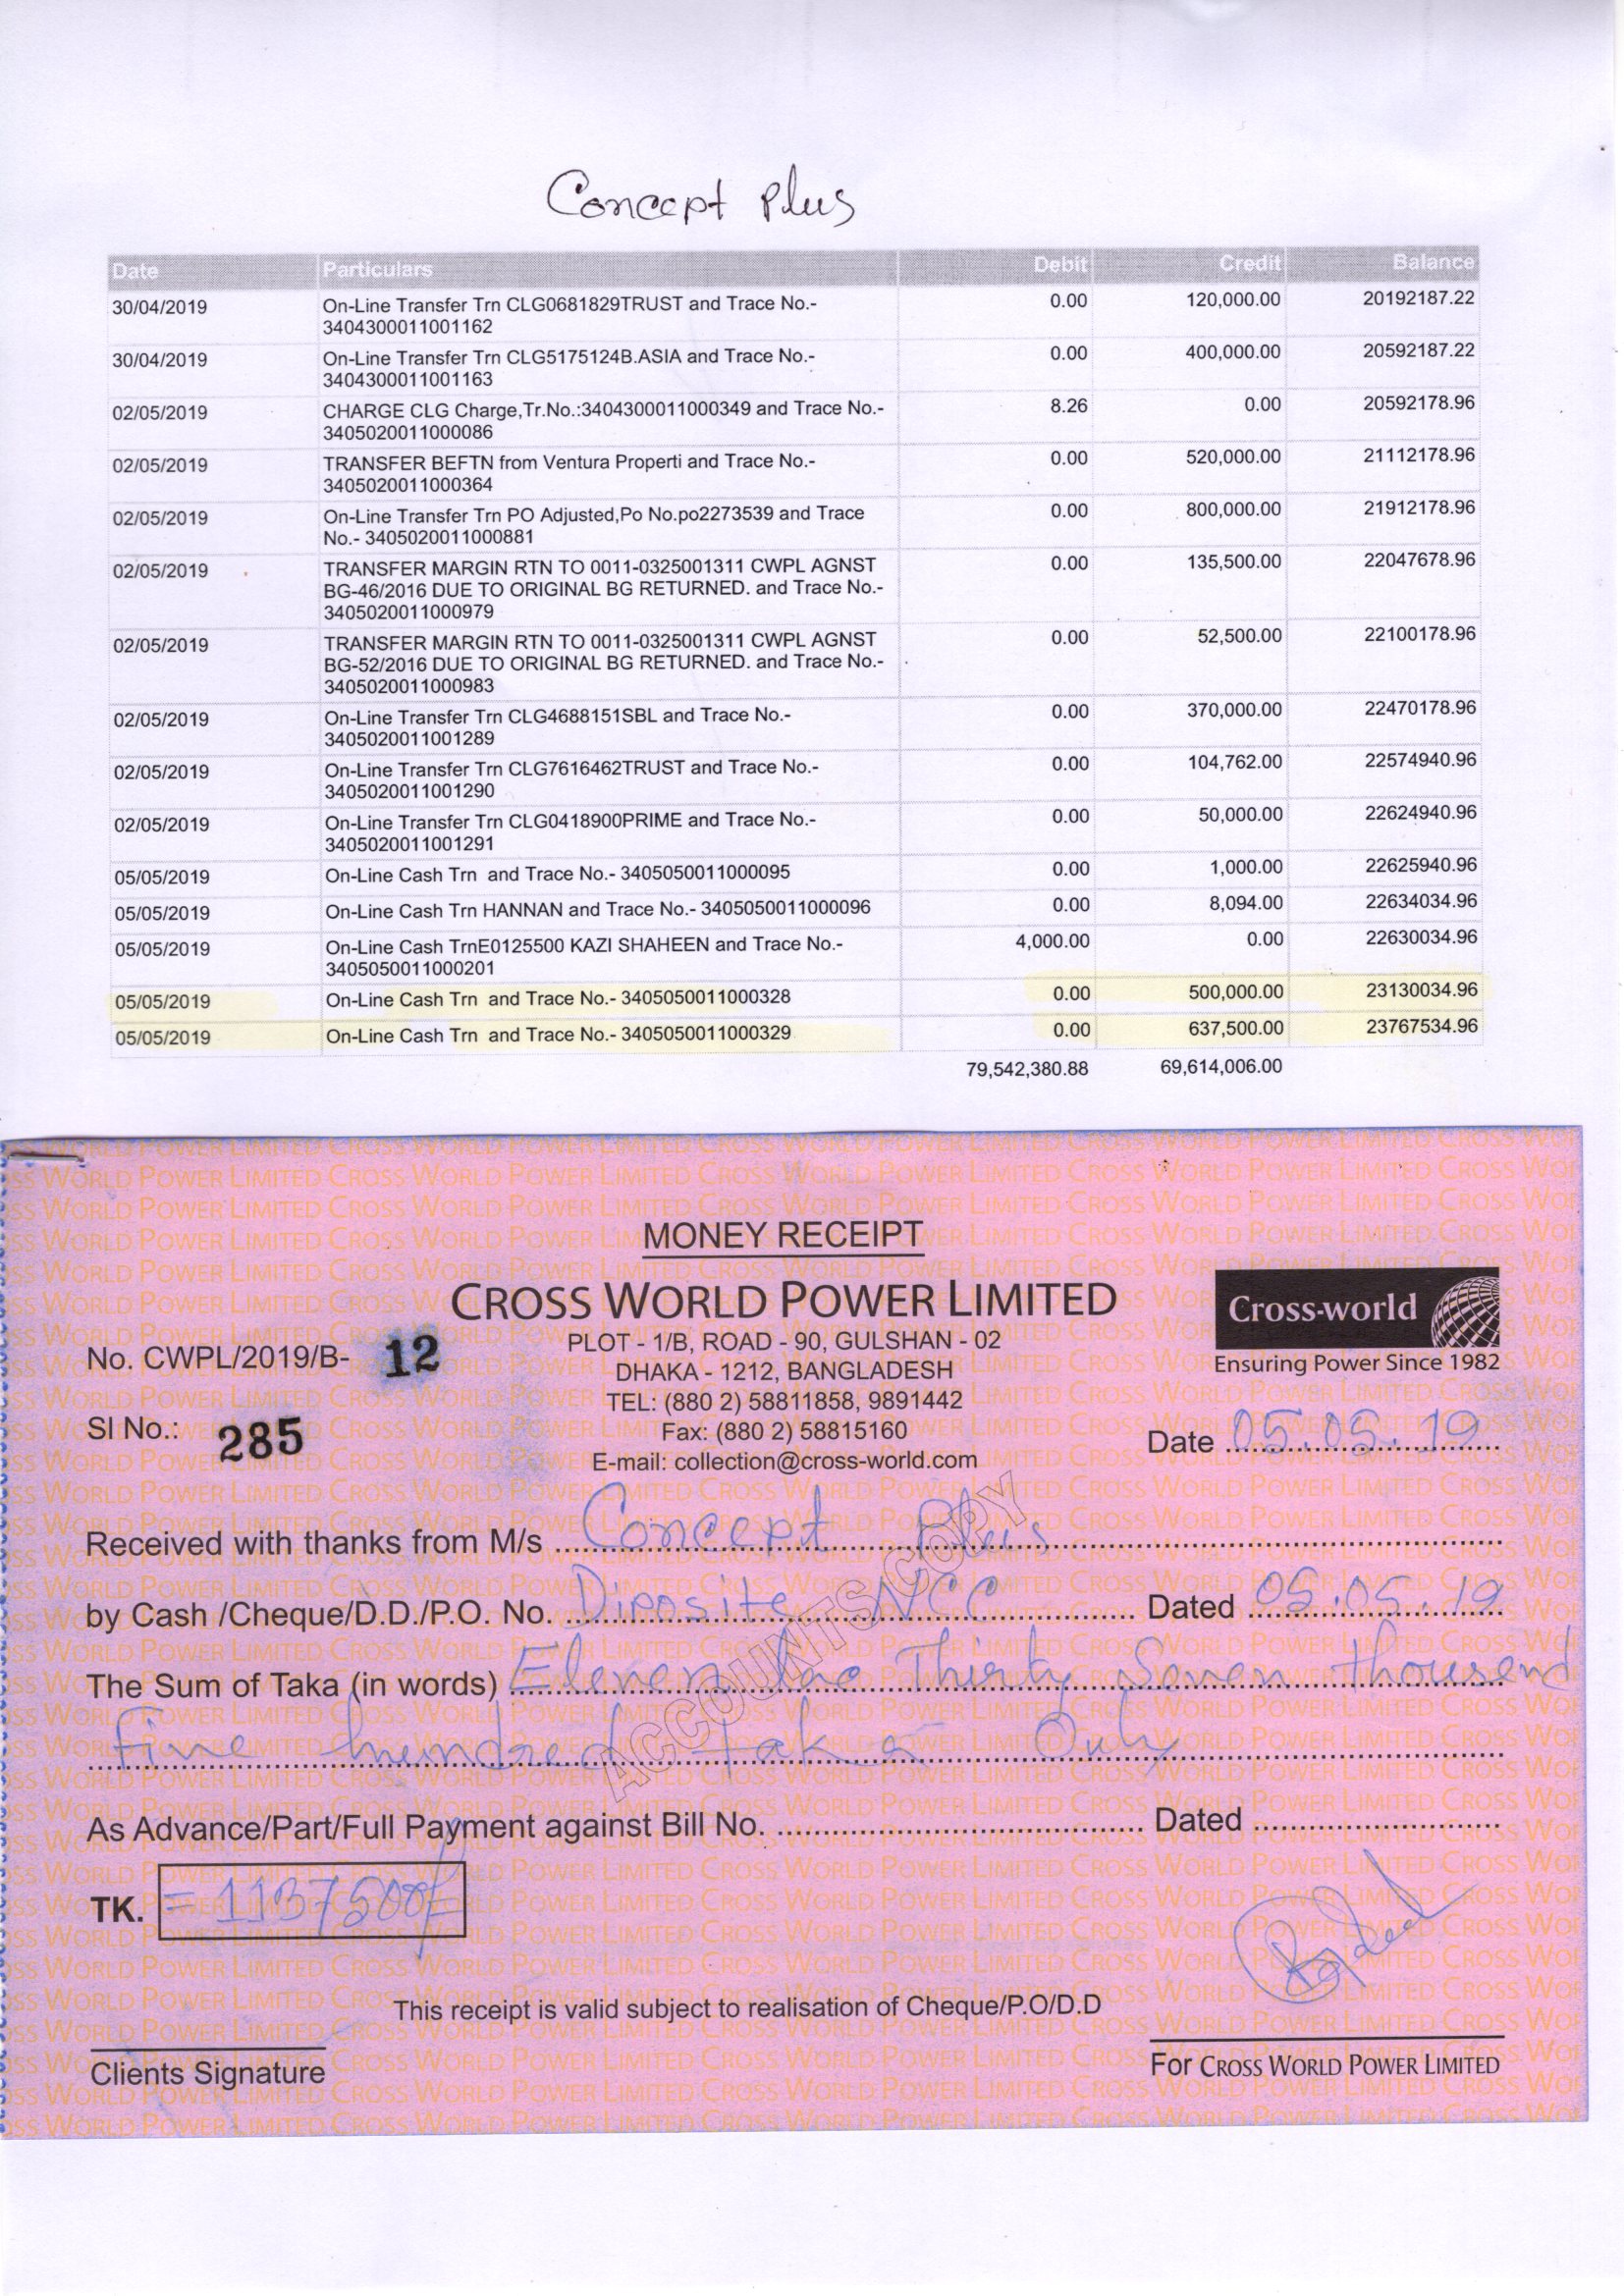 Concept Plus
Date Particulars Debit Credit Balance
30/04/2019 On-Line Transfer Trn CLG0681829TRUST and Trace No.- 0.00 120,000.00 20192187.22
3404300011001162
30/04/2019 On-Line Transfer Trn CLG5175124B.ASIA and Trace No.- 0.00 400,000.00 20592187.22
3404300011001163
02/05/2019 CHARGE CLG Charge,Tr.No.:3404300011000349 and Trace No.- 8.26 0.00 20592178.96
3405020011000086
02/05/2019 TRANSFER BEFTN from Ventura Properti and Trace No.- 0.00 520,000.00 21112178.96
3405020011000364
02/05/2019 On-Line Transfer Trn PO Adjusted,Po No.po2273539 and Trace 0.00 800,000.00 21912178.96
No.- 3405020011000881
02/05/2019 TRANSFER MARGIN RTN TO 0011-0325001311 CWPL AGNST 0.00 135,500.00 22047678.96
BG-46/2016 DUE TO ORIGINAL BG RETURNED. and Trace No.-
3405020011000979
02/05/2019 TRANSFER MARGIN RTN TO 0011-0325001311 CWPL AGNST 0.00 52,500.00 22100178.96
BG-52/2016 DUE TO ORIGINAL BG RETURNED. and Trace No.-
3405020011000983
02/05/2019 On-Line Transfer Trn CLG4688151SBL and Trace No.- 0.00 370,000.00 22470178.96
3405020011001289
02/05/2019 On-Line Transfer Trn CLG7616462TRUST and Trace No.- 0.00 104,762.00 22574940.96
3405020011001290
02/05/2019 On-Line Transfer Trn CLG0418900PRIME and Trace No.- 0.00 50,000.00 22624940.96
3405020011001291
05/05/2019 On-Line Cash Trn and Trace No.- 3405050011000095 0.00 1,000.00 22625940.96
05/05/2019 On-Line Cash Trn HANNAN and Trace No.- 3405050011000096 0.00 8,094.00 22634034.96
05/05/2019 On-Line Cash TrnE0125500 KAZI SHAHEEN and Trace No.- 4,000.00 0.00 22630034.96
3405050011000201
05/05/2019 On-Line Cash Trn and Trace No.- 3405050011000328 0.00 500,000.00 23130034.96
05/05/2019 On-Line Cash Trn and Trace No.- 3405050011000329 0.00 637,500.00 23767534.96
79,542,380.88 69,614,006.00
MONEY RECEIPT
CROSS WORLD POWER LIMITED
Cross-world
Ensuring Power Since 1982
PLOT - 1/B, ROAD - 90, GULSHAN - 02
No. CWPL/2019/B- 12
DHAKA - 1212, BANGLADESH
TEL: (880 2) 58811858, 9891442
Sl No.: 285
Fax: (880 2) 58815160
Date 05.05.19
E-mail: collection@cross-world.com
Received with thanks from M/s Concept Plus
by Cash /Cheque/D.D./P.O. No. Diposite NCC Dated 05.05.19
The Sum of Taka (in words) Eleven Lac Thirty Seven thousend
five hundred taka Only
ACCOUNTS COPY
As Advance/Part/Full Payment against Bill No. Dated
TK. =1137500/=
This receipt is valid subject to realisation of Cheque/P.O/D.D
Clients Signature
For CROSS WORLD POWER LIMITED